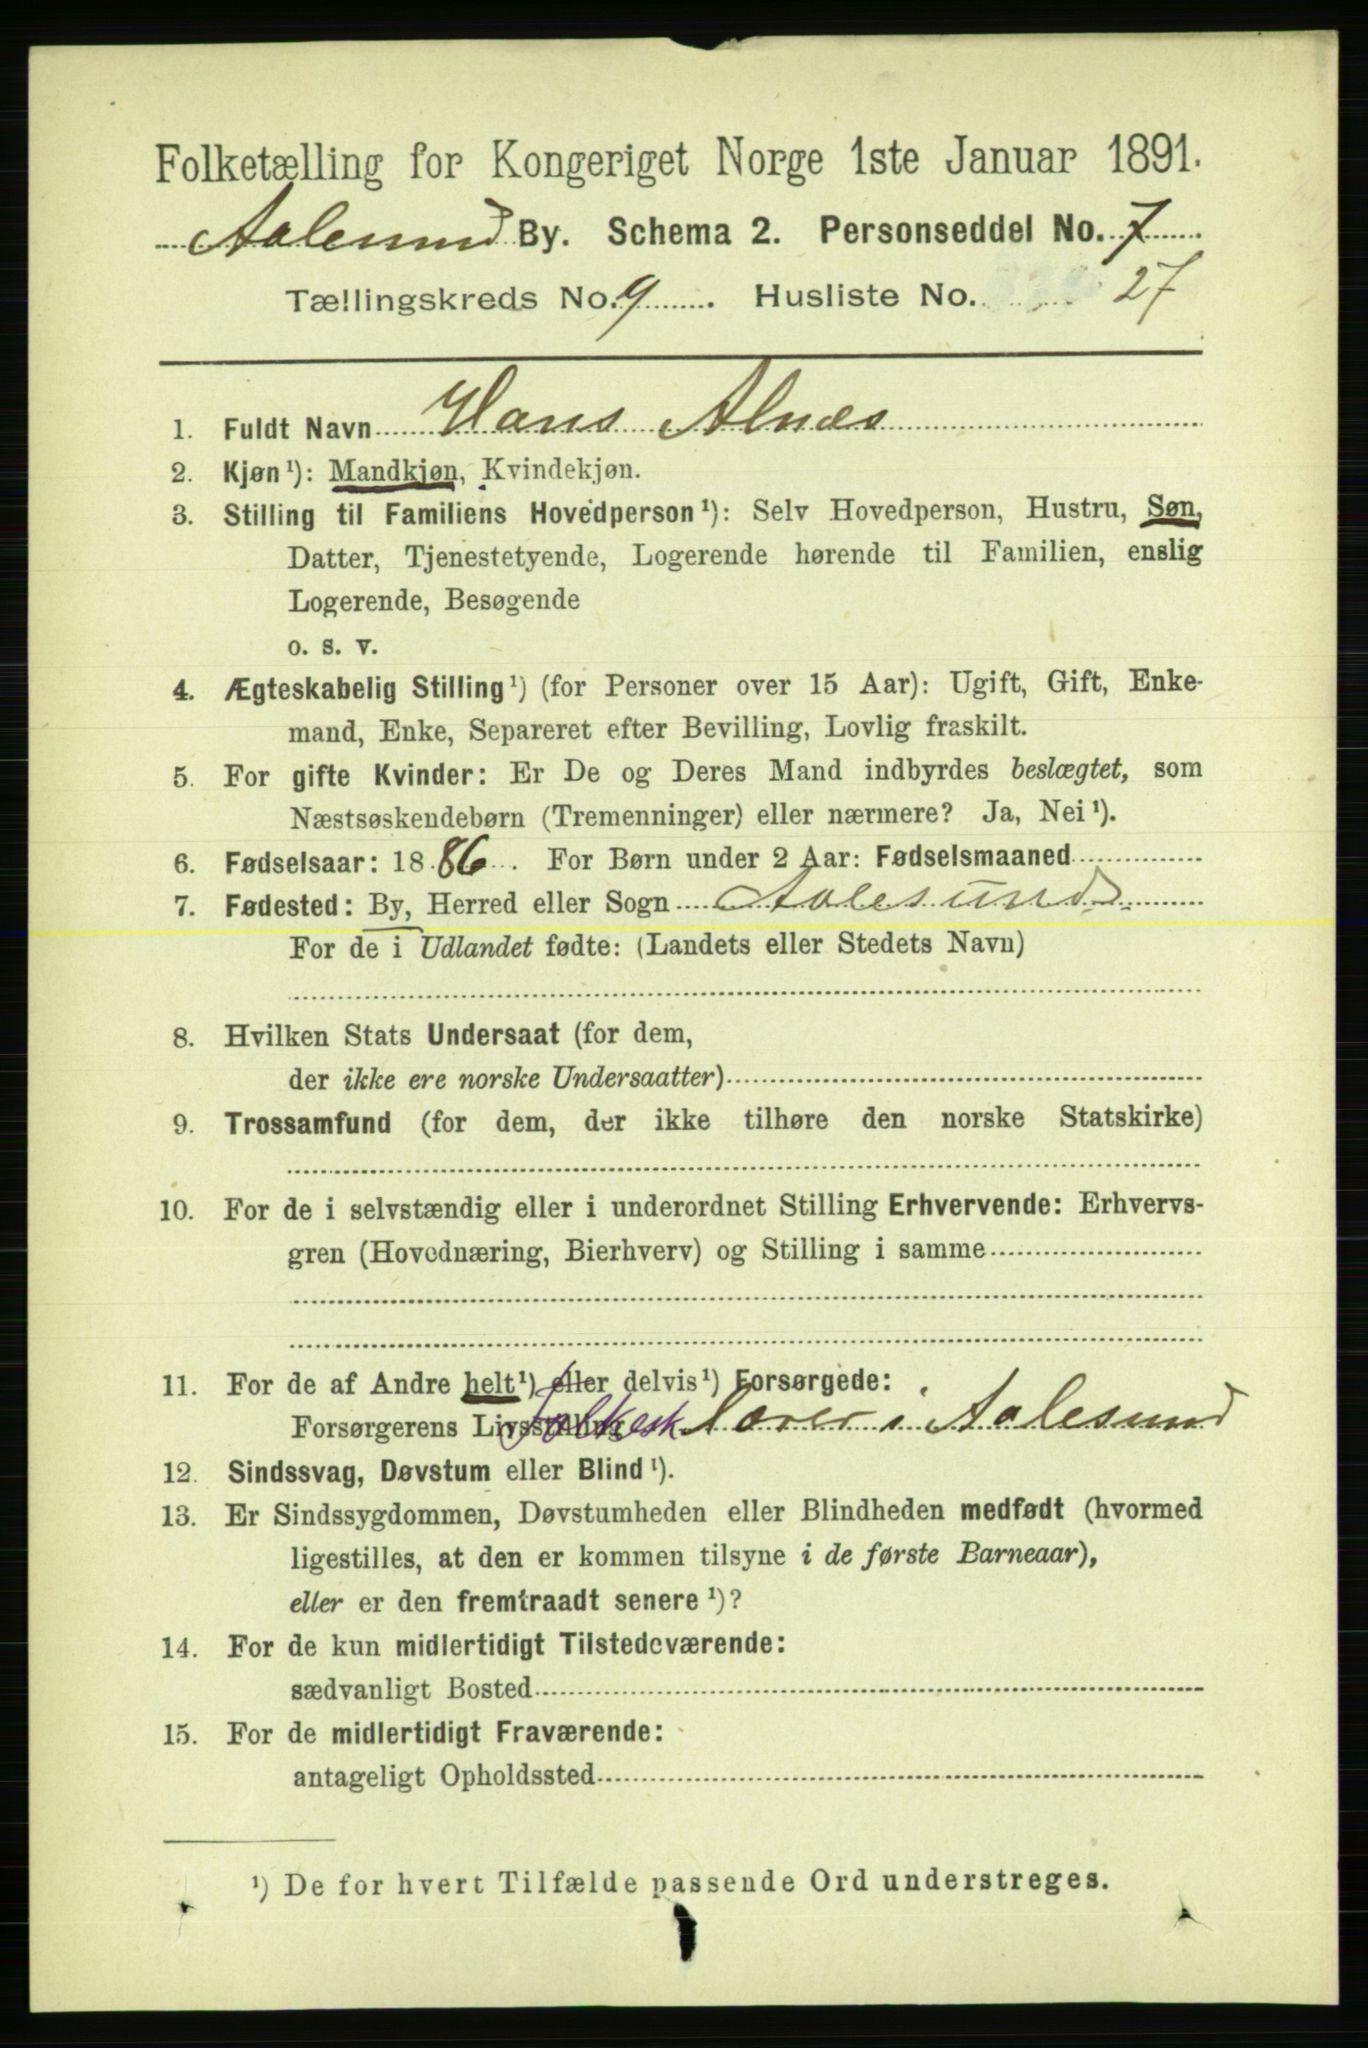 Folketælling for Kongeriget Norge 1ste Januar 1891.
Aalesund By. Schema 2. Personseddel No. 7
Tællingskreds No. 9. Husliste No. 27
1. Fuldt Navn Hans Alnæs
2. Kjøn¹): Mandkjøn, Kvindekjøn.
3. Stilling til Familiens Hovedperson¹): Selv Hovedperson, Hustru, Søn,
Datter, Tjenestetyende, Logerende hørende til Familien, enslig
Logerende, Besøgende
o. s. v.
4. Ægteskabelig Stilling¹) (for Personer over 15 Aar): Ugift, Gift, Enke-
mand, Enke, Separeret efter Bevilling, Lovlig fraskilt.
5. For gifte Kvinder: Er De og Deres Mand indbyrdes beslægtet, som
Næstsøskendebørn (Tremenninger) eller nærmere? Ja, Nei¹).
6. Fødselsaar: 1886. For Børn under 2 Aar: Fødselsmaaned
7. Fødested: By, Herred eller Sogn Aalesund
For de i Udlandet fødte: (Landets eller Stedets Navn)
8. Hvilken Stats Undersaat (for dem,
der ikke ere norske Undersaatter)
9. Trossamfund (for dem, der ikke tilhøre den norske Statskirke)
10. For de i selvstændig eller i underordnet Stilling Erhvervende: Erhvervs-
gren (Hovednæring, Bierhverv) og Stilling i samme
11. For de af Andre helt¹) eller delvis¹) Forsørgede:
Forsørgerens Livsstilling Folkesk Lærer i Aalesund
12. Sindssvag, Døvstum eller Blind¹).
13. Er Sindssygdommen, Døvstumheden eller Blindheden medfødt (hvormed
ligestilles, at den er kommen tilsyne i de første Barneaar),
eller er den fremtraadt senere¹)?
14. For de kun midlertidigt Tilstedeværende:
sædvanligt Bosted
15. For de midlertidigt Fraværende:
antageligt Opholdssted
¹) De for hvert Tilfælde passende Ord understreges.